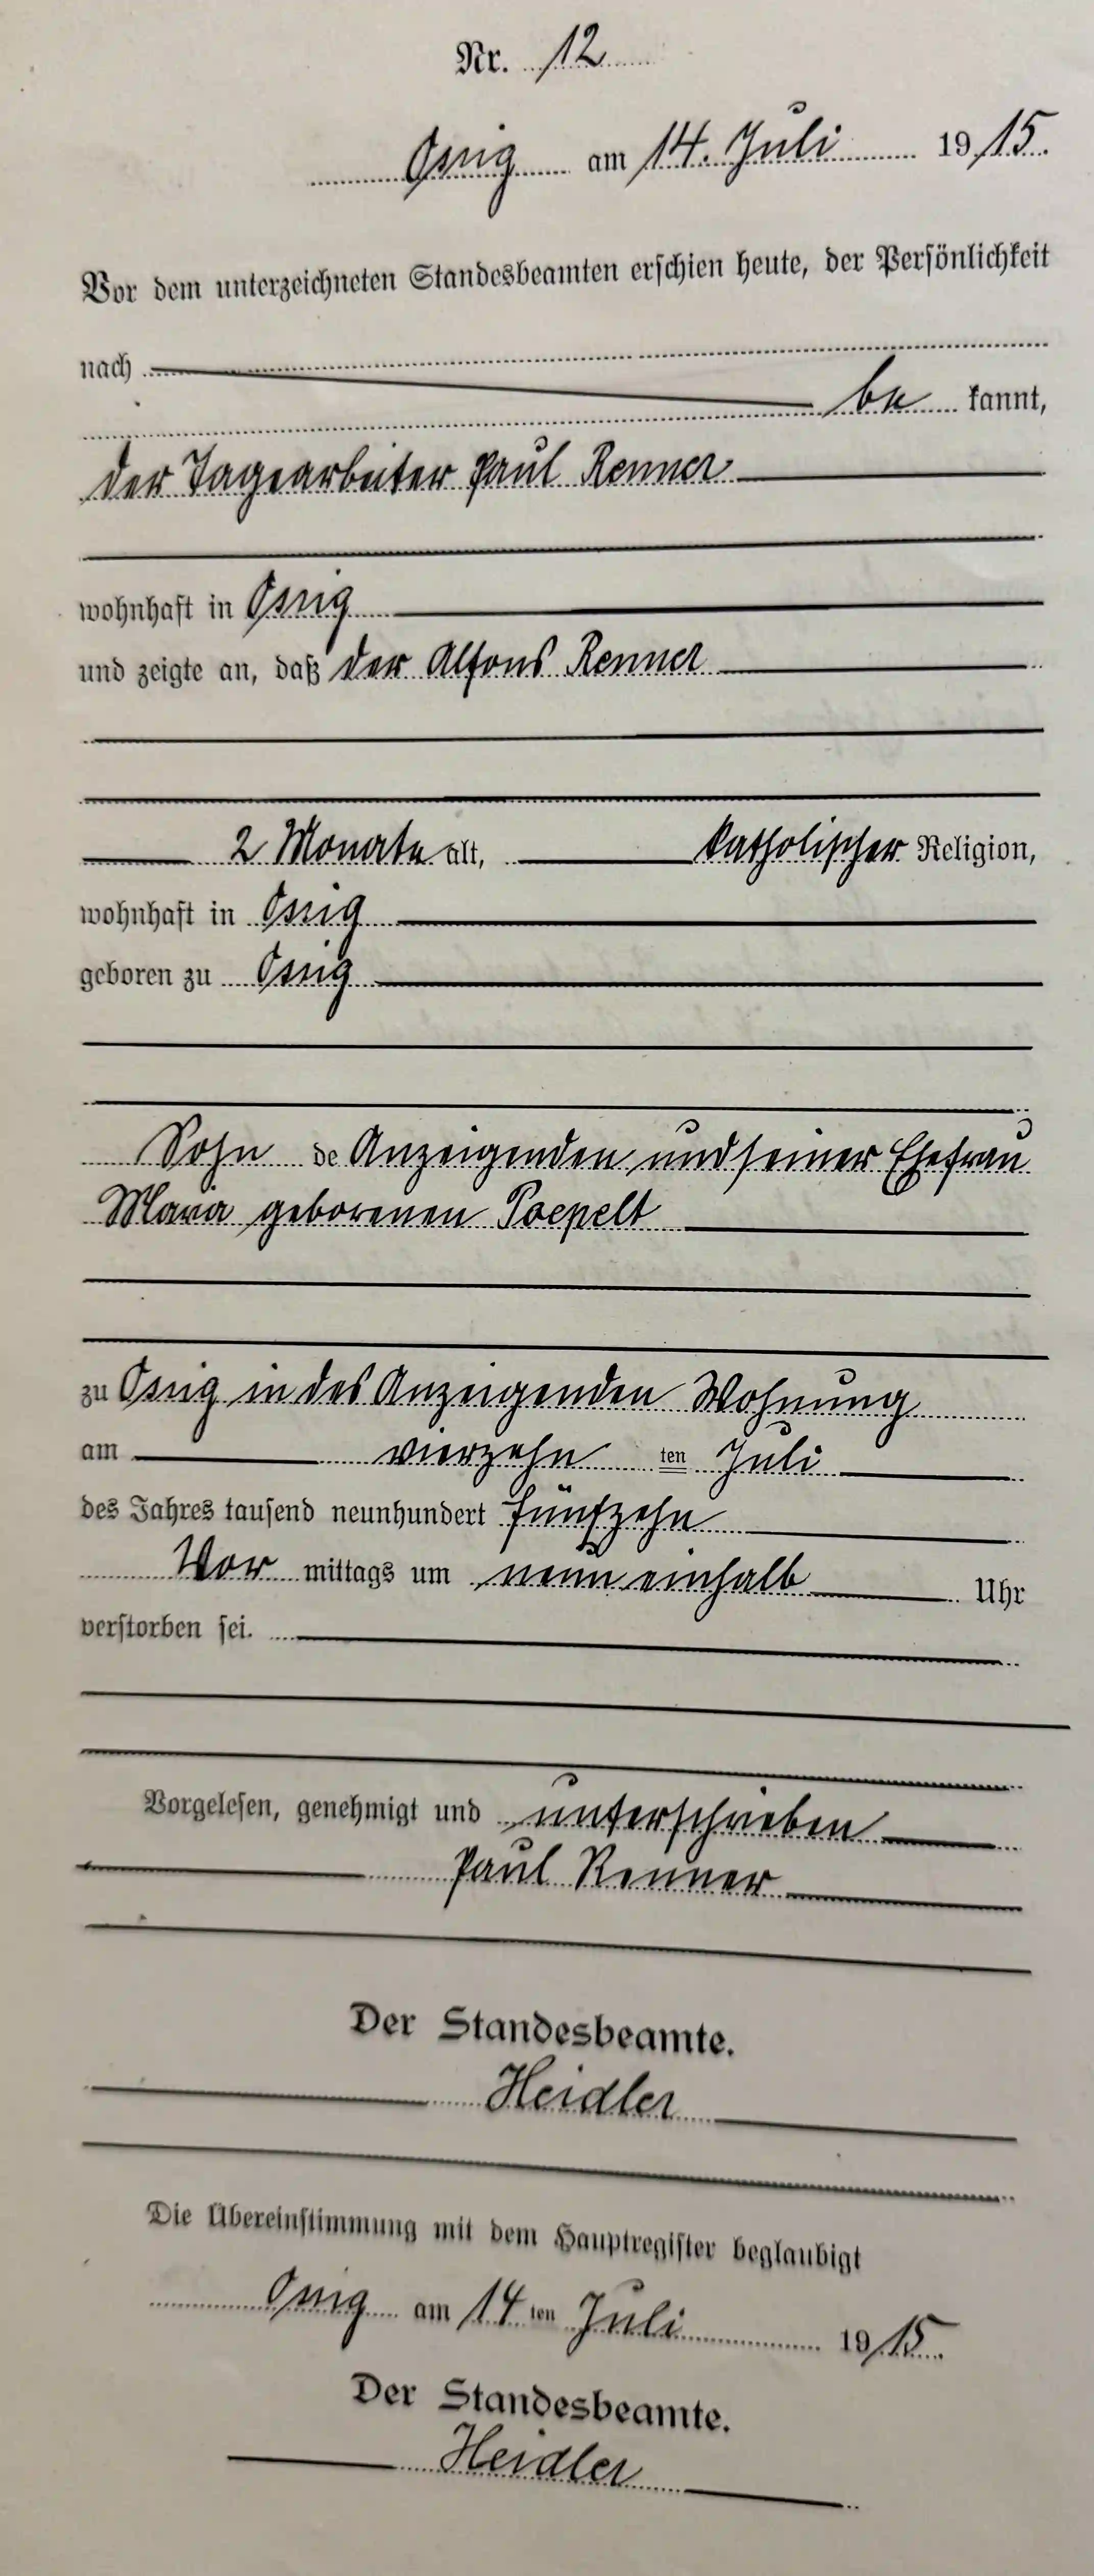 Nr. 12
Ossig am 14. Juli 1915.
Vor dem unterzeichneten Standesbeamten erschien heute, der Persönlichkeit
nach
be kannt,
der Tagearbeiter Paul Renner
wohnhaft in Ossig
und zeigte an, daß der Alfons Renner
2 Monate alt, katholischer Religion,
wohnhaft in Ossig
geboren zu Ossig
Sohn de Anzeigenden und seiner Ehefrau
Maria geborenen Poepelt
zu Ossig in des Anzeigenden Wohnung
am vierzehn ten Juli
des Jahres tausend neunhundert fünfzehn
Vor mittags um neun einhalb Uhr
verstorben sei.
Vorgelesen, genehmigt und unterschrieben
Paul Renner
Der Standesbeamte.
Heidler
Die Übereinstimmung mit dem Hauptregister beglaubigt
Ossig am 14 ten Juli 1915.
Der Standesbeamte.
Heidler